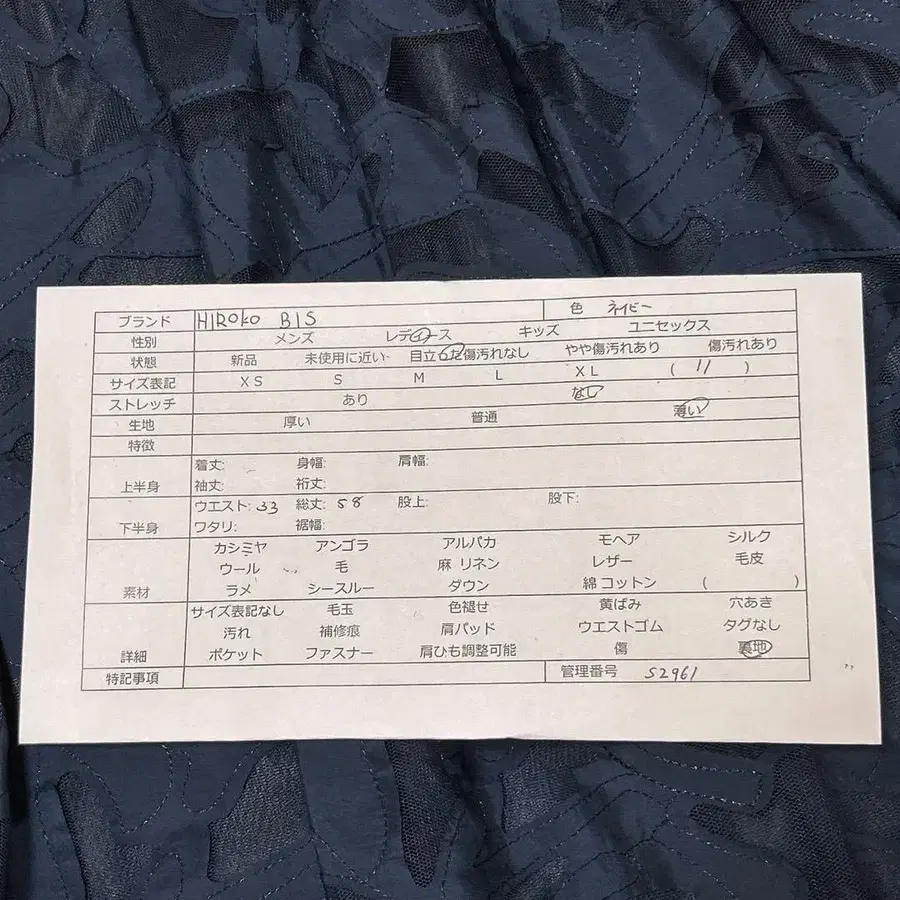 ブランド HIROKO BIS 色 ネイビー
性別 メンズ レディース キッズ ユニセックス
状態 新品 未使用に近い 目立った傷汚れなし やや傷汚れあり 傷汚れあり
サイズ表記 XS S M L XL ( 11 )
ストレッチ あり なし
生地 厚い 普通 薄い
特徴
上半身 着丈: 身幅: 肩幅:
袖丈: 裄丈:
下半身 ウエスト: 33 総丈: 58 股上: 股下:
ワタリ: 裾幅:
素材 カシミヤ アンゴラ アルパカ モヘア シルク
ウール 毛 麻 リネン レザー 毛皮
ラメ シースルー ダウン 綿 コットン ( )
詳細 サイズ表記なし 毛玉 色褪せ 黄ばみ 穴あき
汚れ 補修痕 肩パッド ウエストゴム タグなし
ポケット ファスナー 肩ひも調整可能 傷 裏地
特記事項 管理番号 S2961